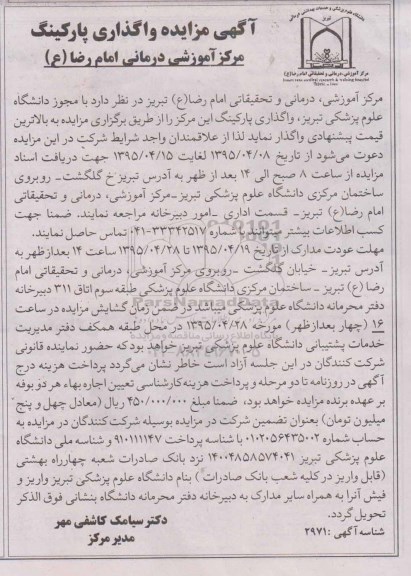 دانشگاه علوم پزشکی و خدمات بهداشتی درمانی
تبریز
مرکز آموزشی، درمانی و تحقیقاتی امام رضا(ع)
آگهی مزایده واگذاری پارکینگ
مرکز آموزشی درمانی امام رضا (ع)
مرکز آموزشی، درمانی و تحقیقاتی امام رضا(ع) تبریز در نظر دارد با مجوز دانشگاه
علوم پزشکی تبریز، واگذاری پارکینگ این مرکز را از طریق برگزاری مزایده به بالاترین
قیمت پیشنهادی واگذار نماید لذا از علاقمندان واجد شرایط شرکت در این مزایده
دعوت می‌شود از تاریخ ۱۳۹۵/۰۴/۰۸ لغایت ۱۳۹۵/۰۴/۱۵ جهت دریافت اسناد
مزایده از ساعت ۸ صبح الی ۱۴ بعد از ظهر به آدرس تبریز-خ گلگشت- روبروی
ساختمان مرکزی دانشگاه علوم پزشکی تبریز-مرکز آموزشی، درمانی و تحقیقاتی
امام رضا(ع) تبریز- قسمت اداری -امور دبیرخانه مراجعه نمایند. ضمنا جهت
کسب اطلاعات بیشتر میتوانید با شماره ۳۳۳۴۲۵۱۷-۰۴۱ تماس حاصل نمایند.
مهلت عودت مدارک از تاریخ ۱۳۹۵/۰۴/۱۹ تا ۱۳۹۵/۰۴/۲۸ ساعت ۱۴ بعدازظهر به
آدرس تبریز- خیابان گلگشت -روبروی مرکز آموزشی، درمانی و تحقیقاتی امام
رضا (ع) تبریز - ساختمان مرکزی دانشگاه علوم پزشکی طبقه سوم اتاق ۳۱۱ دبیرخانه
دفتر محرمانه دانشگاه علوم پزشکی میباشد در ضمن زمان گشایش مزایده در ساعت
۱۶ (چهار بعدازظهر) مورخه ۱۳۹۵/۰۴/۲۸ در محل طبقه همکف دفتر مدیریت
خدمات پشتیبانی دانشگاه علوم پزشکی تبریز خواهد بود که حضور نماینده قانونی
شرکت کنندگان در این جلسه آزاد است خاطر نشان می‌گردد پرداخت هزینه درج
آگهی در روزنامه تا دو مرحله و پرداخت هزینه کارشناسی تعیین اجاره بهاء هر دو بوفه
بر عهده برنده مزایده خواهد بود، ضمنا مبلغ ۴۵۰/۰۰۰/۰۰۰ ریال (معادل چهل و پنج
میلیون تومان) بعنوان تضمین شرکت در مزایده بوسیله شرکت‌کنندگان در مزایده به
حساب شماره ۰۱۰۲۰۵۶۴۳۵۰۰۲ با شناسه پرداخت ۹۱۰۱۱۱۱۴۷ و شناسه ملی دانشگاه
علوم پزشکی تبریز ۱۴۰۰۴۸۵۸۵۷۴۰۴۱ نزد بانک صادرات شعبه چهارراه بهشتی
(قابل واریز در کلیه شعب بانک صادرات) بنام دانشگاه علوم پزشکی تبریز واریز و
فیش آنرا به همراه سایر مدارک به دبیرخانه دفتر محرمانه دانشگاه بنشانی فوق الذکر
تحویل گردد.
شناسه آگهی: ۲۹۷۱
دکتر سیامک کاشفی مهر
مدیر مرکز
ParsNamadData